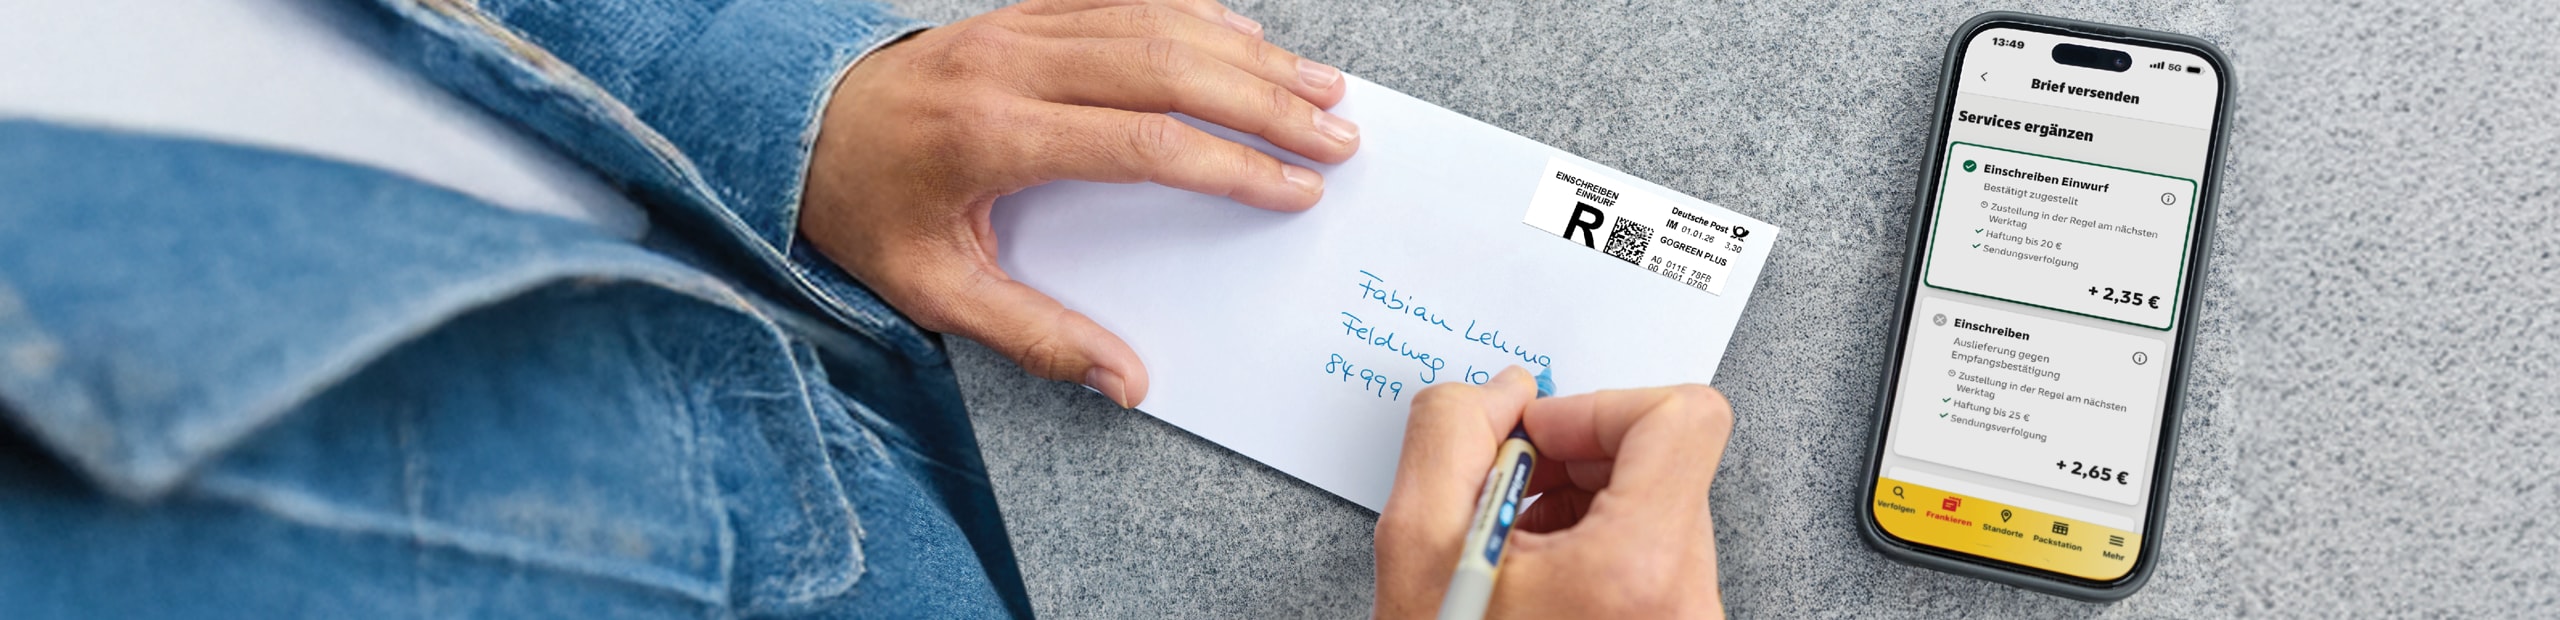 EINSCHREIBEN
EINWURF
R
Deutsche Post
IM 01.01.26 3,30
GOGREEN PLUS
A0 011E 78FB
00 0001 D780
Fabian Lehma
Feldweg 10
84999
13:49
5G
Brief versenden
Services ergänzen
Einschreiben Einwurf
Bestätigt zugestellt
Zustellung in der Regel am nächsten
Werktag
Haftung bis 20 €
Sendungsverfolgung
+ 2,35 €
Einschreiben
Auslieferung gegen
Empfangsbestätigung
Zustellung in der Regel am nächsten
Werktag
Haftung bis 25 €
Sendungsverfolgung
+ 2,65 €
Verfolgen Frankieren Standorte Packstation Mehr